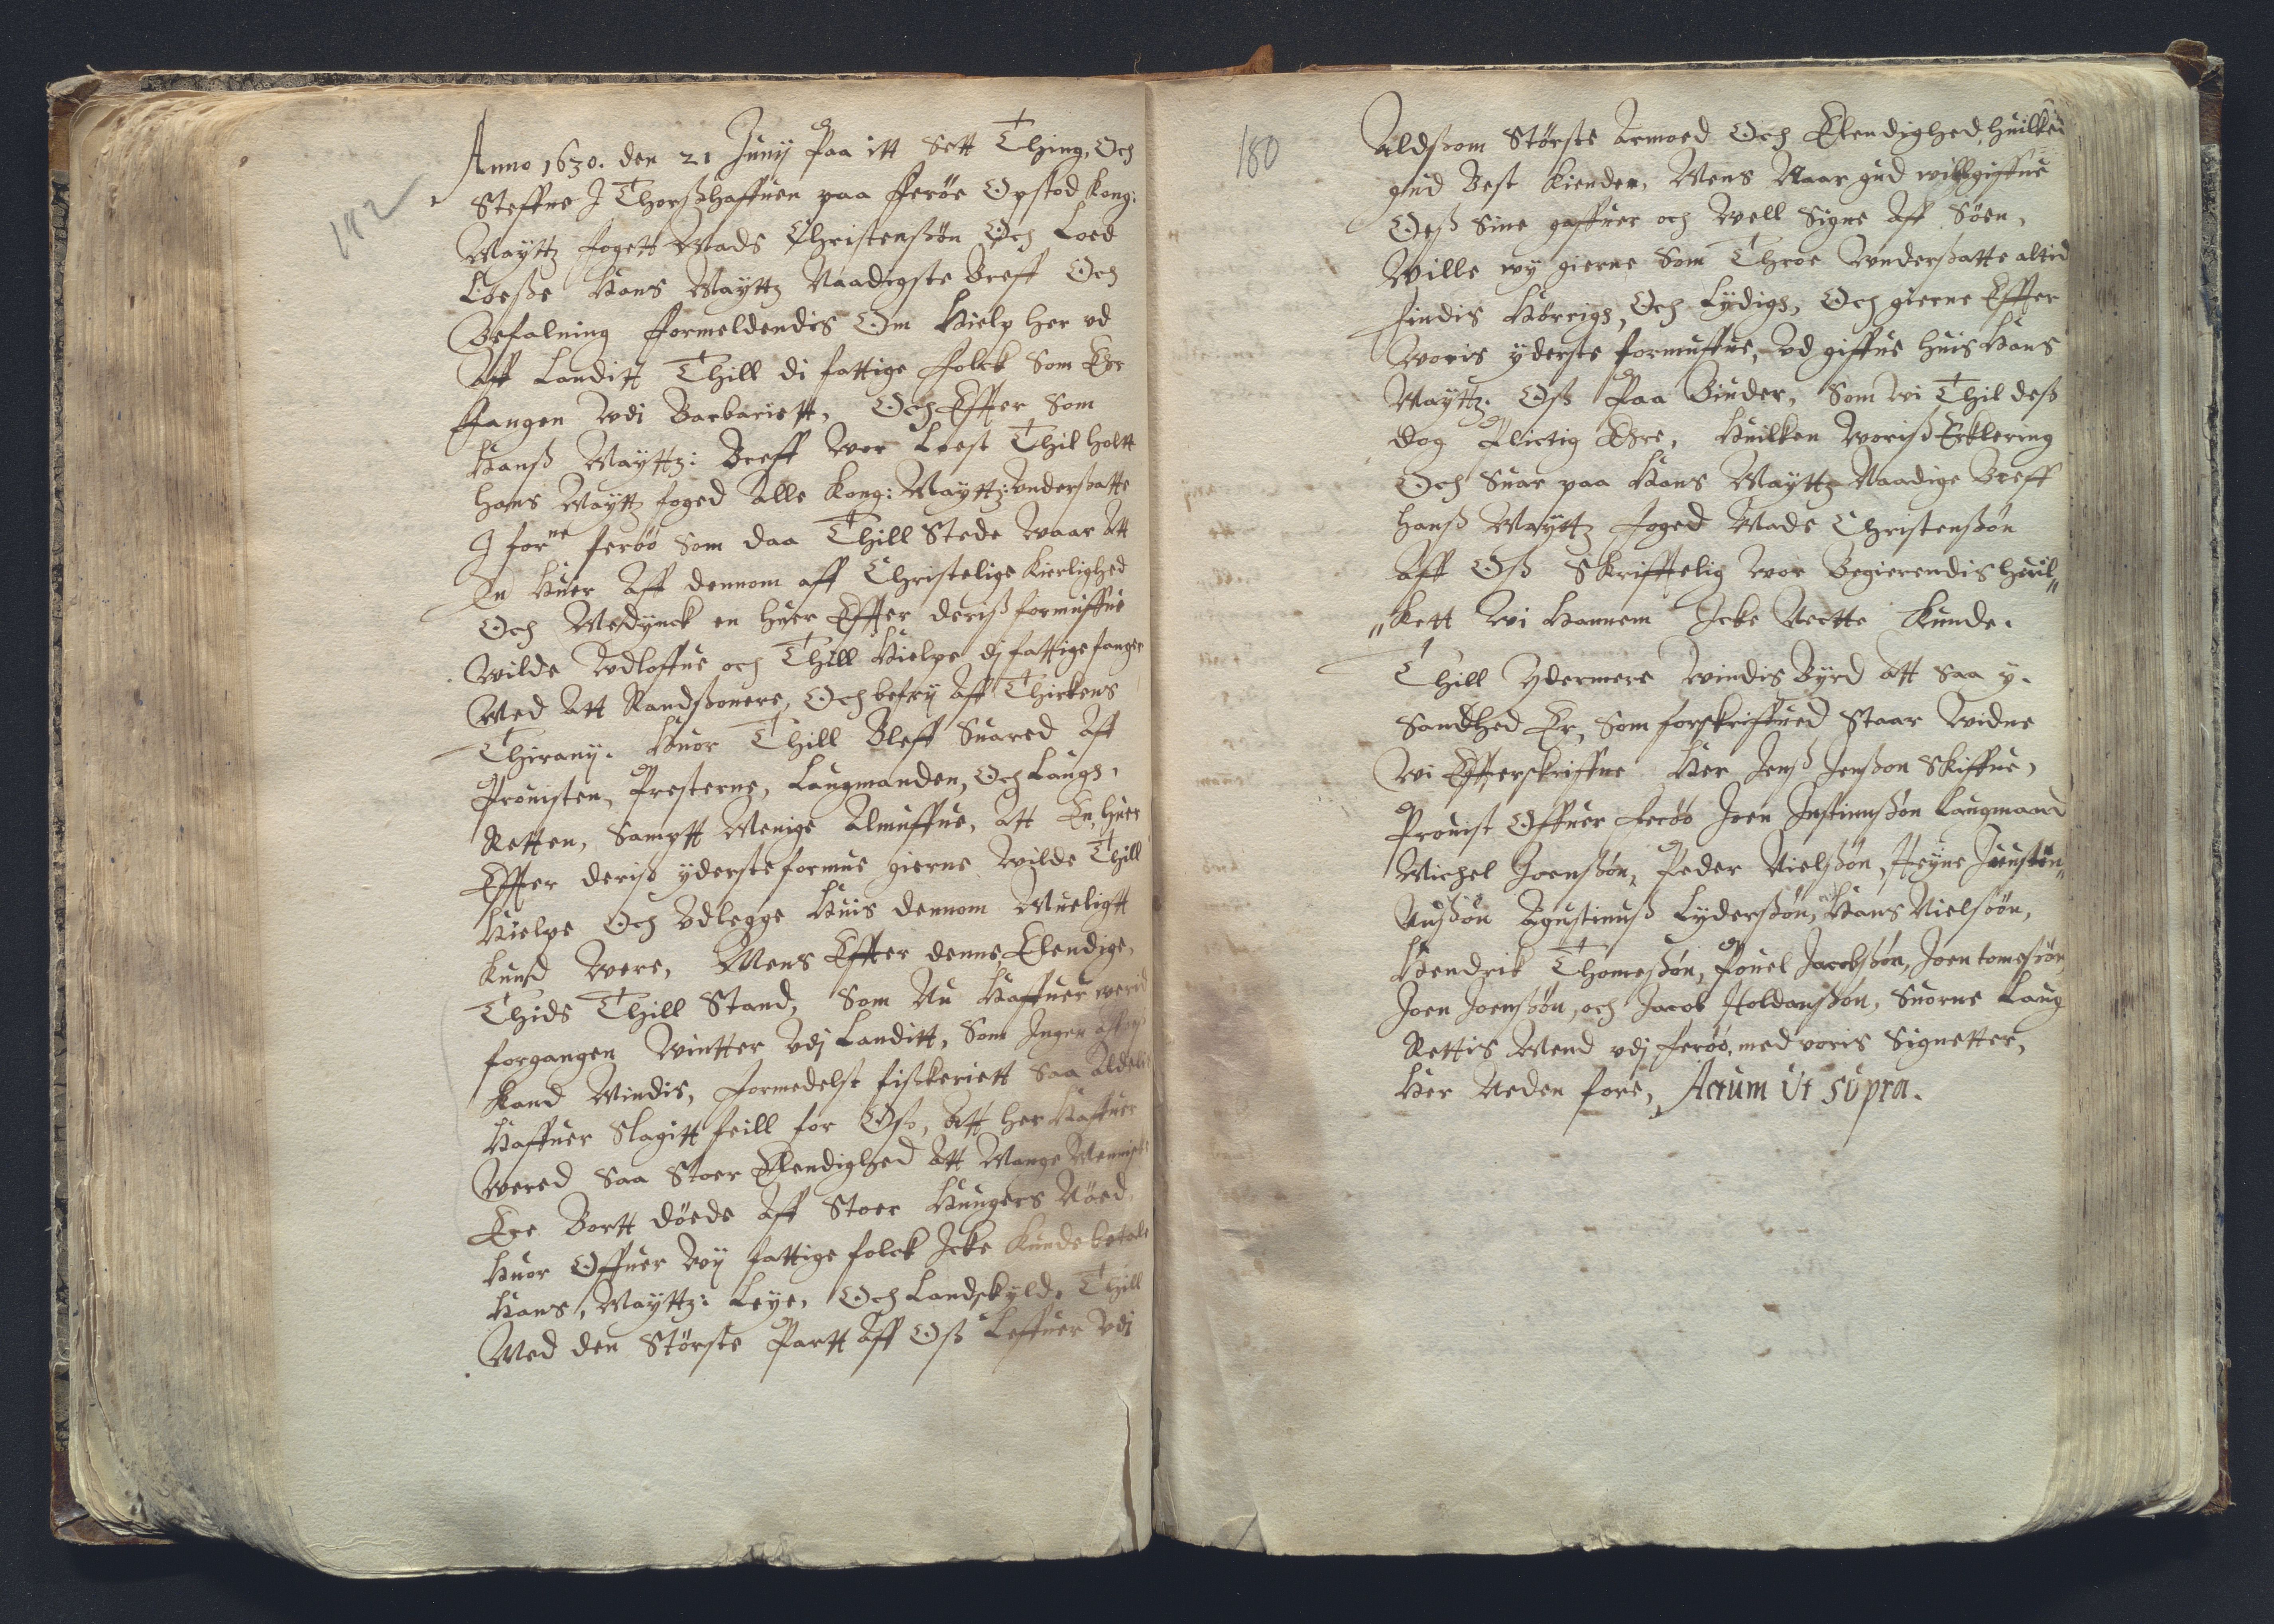 182
Anno 1630. den 21 Junij Paa itt Sett Thing, Och
Steffne I Thorßhaffuen paa fferöe Opstod kong:
Maÿttz fogett Mads Christenßön Och Loed
Loeße Hans Maÿttz Naadigste Breff Och
Befalning formeldendis Om Hielp her vd
Aff Landitt Thill di fattige folck Som Ehr
ffangen Vdi Barbariett, Och Effter Som
Hanß Maÿttz: Breff Vor Lest Thil holtt
hans Maÿttz foged Alle kong: Maÿttz: vnderßatte
I forne feröö Som daa Thill Stede Vaar Att
En Huer Aff dennom aff Christelige kierlighed
Och Medÿnck en huer Effter deriß formuffue
Wilde Vdloffue och Thill Hielpe dj fattige fanger
Med Att Randßonere, Och befrÿ Aff Thirkens
Thiranÿ. Huor Thill Bleff Suared Aff
Prouisten, Presterne, Laugmanden, Och Laugs,
Retten, Samptt Menige Almuffue, Att En huer
Effter deriß ÿderste formue gierne Vilde Thill
Hielpe Och Vdlegge Huis dennom Mueligtt
kund Vere, Mens Effter denne Elendige,
Thids Thill Stand, Som Nu Haffuer verid
forgangen Vintter Vdj Landitt, Som Ingen
kand Mindis, formedelst fißkeriett Saa
Haffuer Slagitt feill for Oß, Att her Haffuer
Vered Saa Stoer Elendighed Att Mange
Ere Bortt döede Aff Stoer Hungers Nöed,
Huor Offuer Vÿ fattige folck Icke kunde betale
Hans, Maÿttz: Leÿe, Och Landskyld, Thill
Med den Störste Partt Aff Oß Leffuer Vdi
180
Aldßom Störste Armoed Och Elendighed, huilked
gud Best kiender, Mens Naar gud will giffue
Oeß Sine gaffuer och Vell Signe Aff Söen,
Wille vÿ gierne Som Throe Vnderßatte altid
findis Hörrigs, Och Lÿdigs, Och gierne Effter
Voris ÿderste formuffue, Vd giffue huis Hans
Maÿttz: Oß Paa Biuder, Som vi Thil deß
dog Plictig Ehre, Huilken Voriß Erklering
Och Suar paa Hans Maÿttz Naadige Breff
hanß Maÿttz foged Mads Christenßön
Aff Oß Skrifftelig Vor Begierendis huil„
„kett Vi Hannem Icke Nectte kunde.
Thill Ydermere Vindis Bÿrd Att Saa ÿ.
Sandhed Er, Som forskriffued Staar Vidne
Vi Effterskriffne Her Jenß Jenßon Skiffue,
Prouist Offuer feröö Joen Justinußön Laugmand
Michel Joenßön, Peder Nielßön, Heÿne Jousten„
Nußön Agustinuß Lÿderßön, Hans Nielsöön,
Hendrik Thomeßön, Pouel Jacobßön, Joen tomesön
Joen Joenßön, och Jacob Holdanßön, Suorne Laug
Rettis Mend vdj feröö, med voris Signetter,
Her Neden fore, Actum Ut supra.